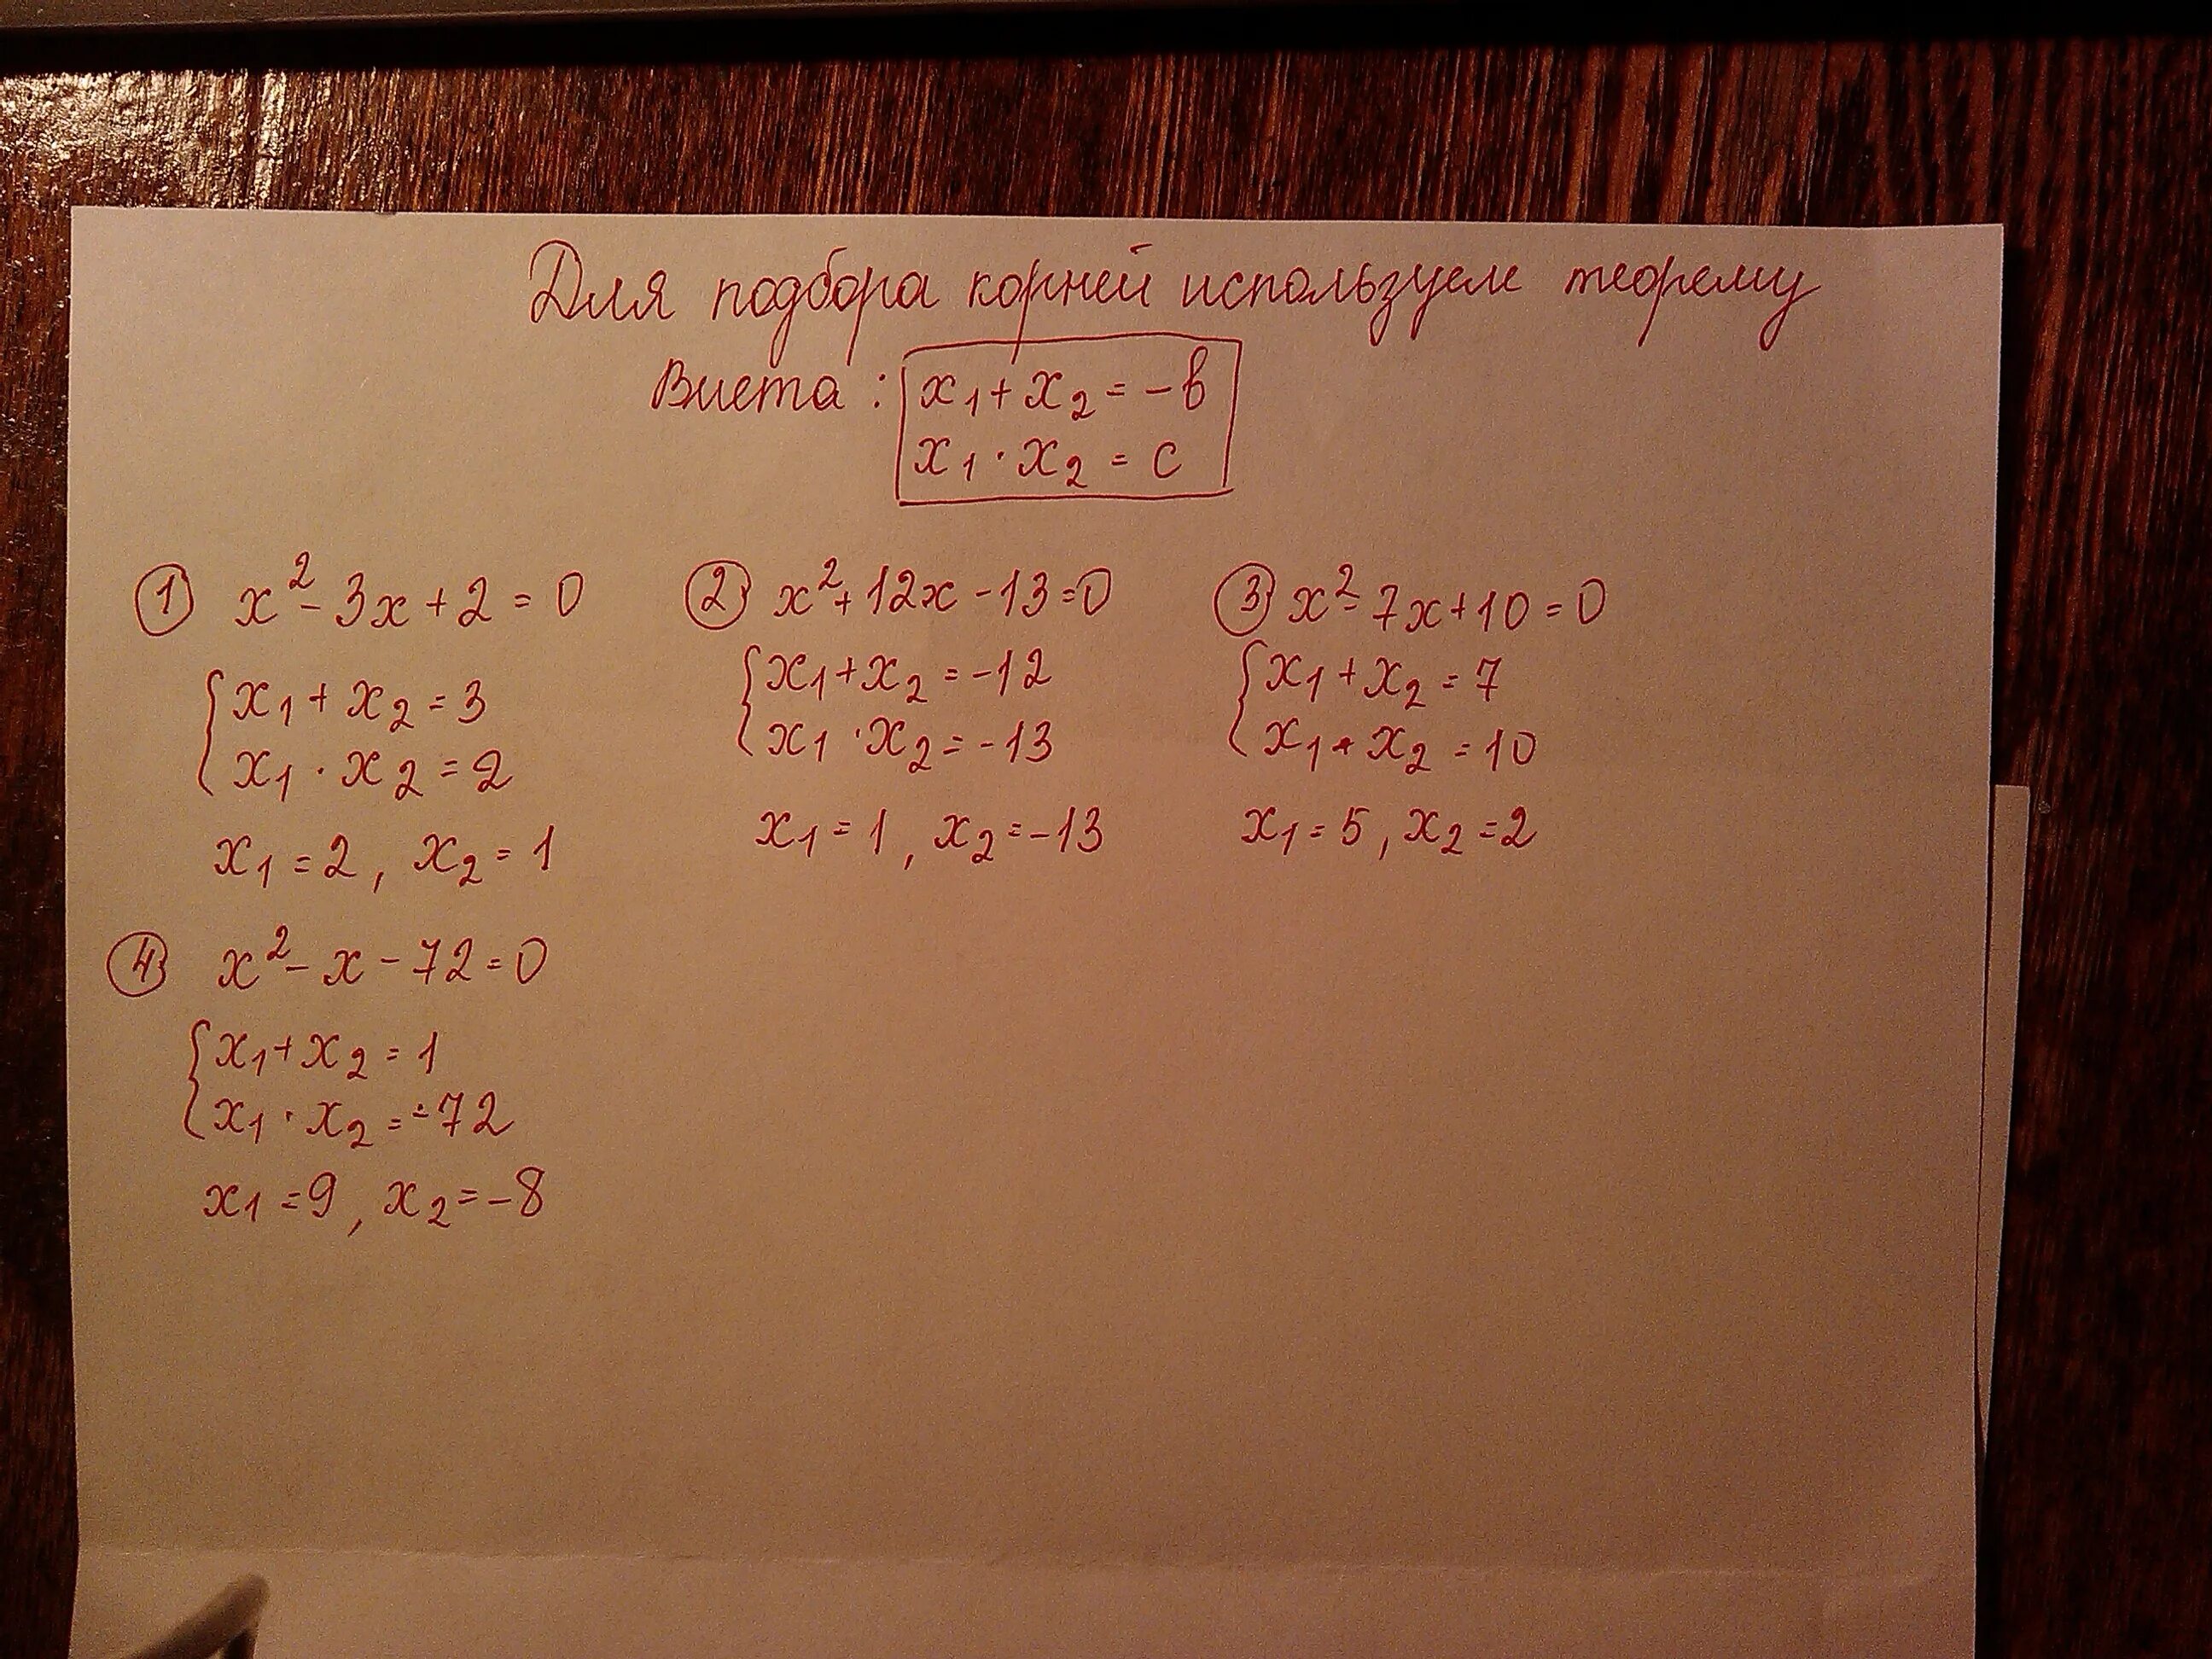 Для подбора корней используем теорему
Виета: x₁ + x₂ = -в
x₁ · x₂ = c
① x² - 3x + 2 = 0
{x₁ + x₂ = 3
x₁ · x₂ = 2
x₁ = 2, x₂ = 1
② x² + 12x - 13 = 0
{x₁ + x₂ = -12
x₁ · x₂ = -13
x₁ = 1, x₂ = -13
③ x² - 7x + 10 = 0
{x₁ + x₂ = 7
x₁ · x₂ = 10
x₁ = 5, x₂ = 2
④ x² - x - 72 = 0
{x₁ + x₂ = 1
x₁ · x₂ = -72
x₁ = 9, x₂ = -8